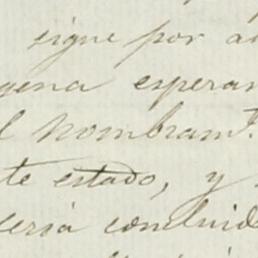 sigue por a
gena esperan
l nombram.to
te estado, y
ceria concluid